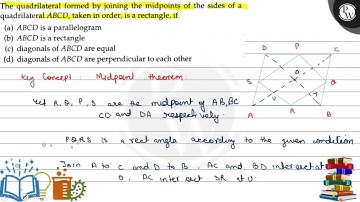 The quadrilateral formed by joining the midpoints of the sides of a
quadrilateral ABCD, taken in order, is a rectangle, if
(a) ABCD is a parallelogram
(b) ABCD is a rectangle
(c) diagonals of ABCD are equal
(d) diagonals of ABCD are perpendicular to each other
D P C
S O Q
A R B
Key Concept : Midpoint theorem:
R, Q, P, S are the midpoint of AB, BC
CD and DA respectively.
PQRS is a rectangle according to the given condition
Join A to C and D to B , AC and BD intersect at
O, AC intersect SR at U.